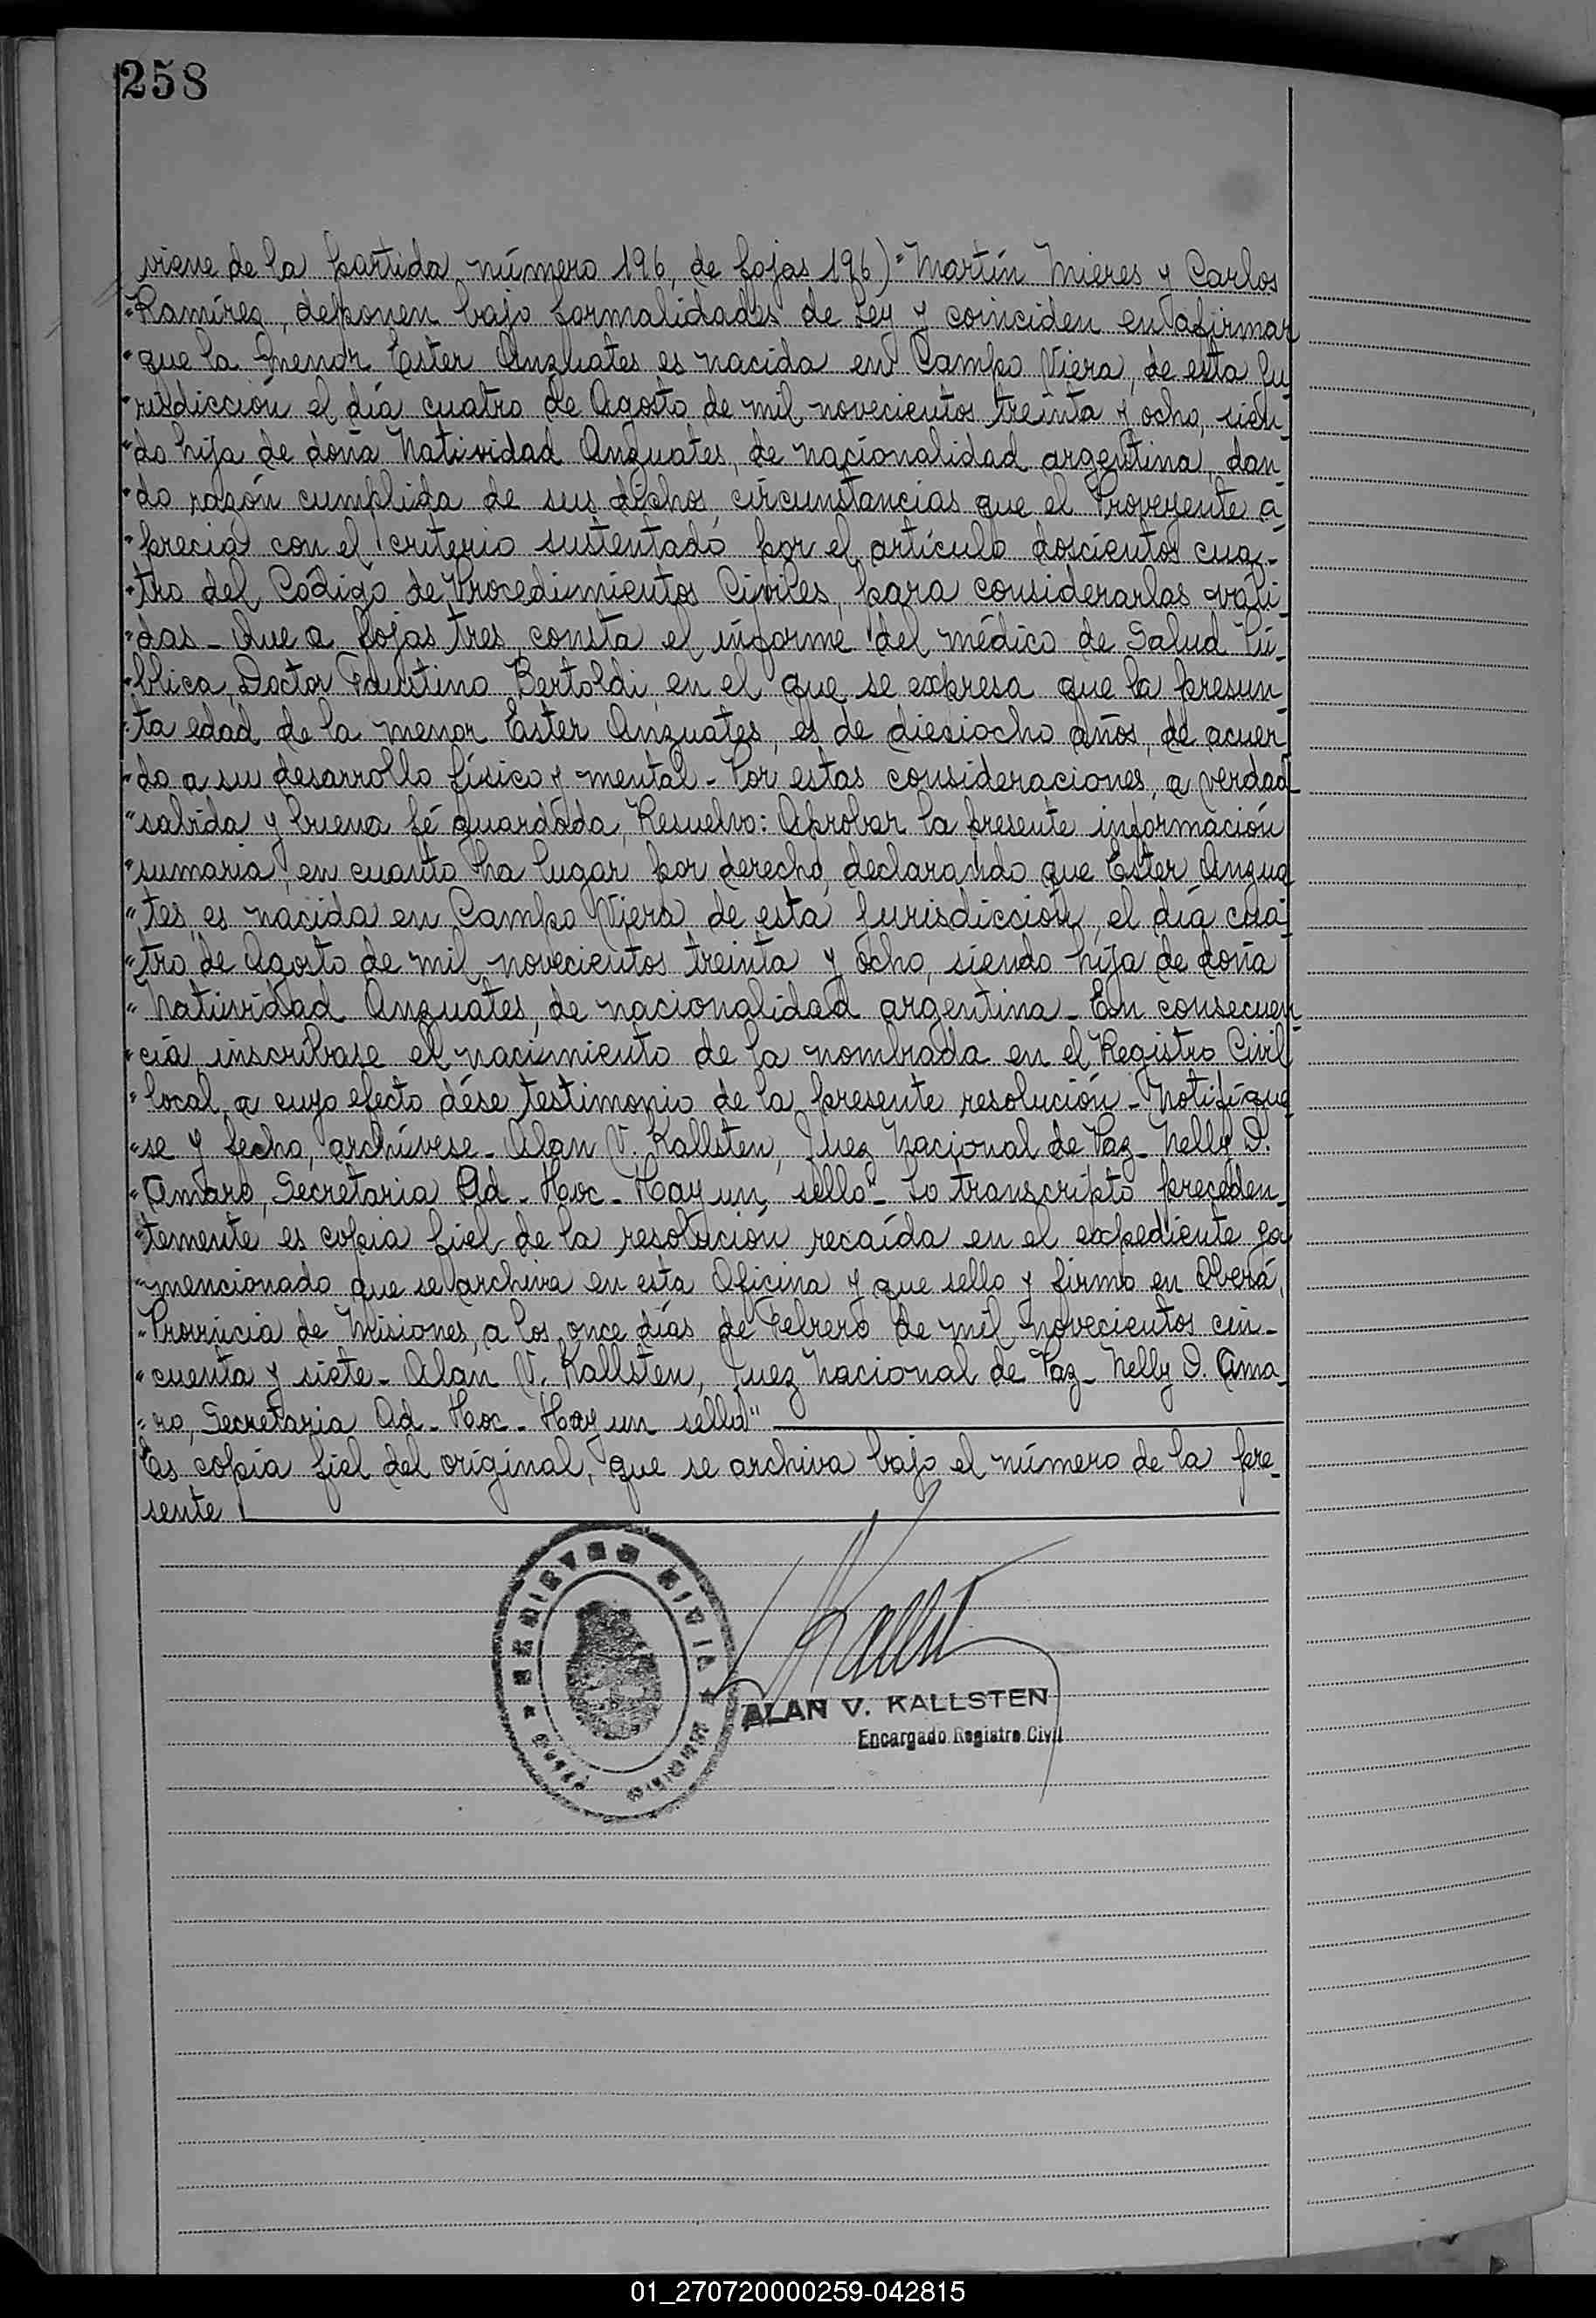 258
viene de la partida número 196, de fojas 196) "Martín Mieres y Carlos
"Ramírez, deponen bajo formalidades de Ley y coinciden en afirmar
"que la menor Ester Anzuates es nacida en Campo Viera, de esta Ju-
"risdicción el día cuatro de Agosto de mil novecientos treinta y ocho, sien-
"do hija de doña Natividad Anzuates, de nacionalidad argentina, dan-
"do razón cumplida de sus dichos, circunstancias que el Proveyente a-
"precia con el criterio sustentado por el artículo doscientos cua-
"tro del Código de Procedimientos Civiles, para considerarlas váli-
"das - Que a fojas tres, consta el informe del médico de Salud Pú-
"blica, Doctor Faustino Bertoldi, en el que se expresa que la presun-
"ta edad de la menor Ester Anzuates, es de dieciocho años, de acuer-
"do a su desarrollo físico y mental - Por estas consideraciones, a verdad
"sabida y buena fé guardada, Resuelvo: Aprobar la presente información
"sumaria, en cuanto ha lugar por derecho, declarando que Ester Anzua
"tes, es nacida en Campo Viera de esta Jurisdicción, el día cua-
"tro de Agosto de mil novecientos treinta y ocho, siendo hija de doña
"Natividad Anzuates, de nacionalidad argentina - En consecuen-
"cia, inscríbase el nacimiento de la nombrada en el Registro Civil
"local, a cuyo efecto dése testimonio de la presente resolución - Notifíque
"se y fecho, archívese - Alan V. Kallsten, Juez Nacional de Paz - Nelly D.
"Amaro, Secretaria Ad - Hoc - Hay un sello" - Lo transcripto preceden-
"temente es copia fiel de la resolución recaída en el expediente ya
"mencionado que se archiva en esta Oficina y que sello y firmo en Oberá,
"Provincia de Misiones, a los once días de Febrero de mil novecientos cin-
"cuenta y siete - Alan V. Kallsten, Juez Nacional de Paz - Nelly D. Ama-
"ro, Secretaria Ad - Hoc - Hay un sello"
Es copia fiel del original, que se archiva bajo el número de la pre-
sente
REGISTRO CIVIL
ALAN V. KALLSTEN
Encargado Registro Civil
01_270720000259-042815